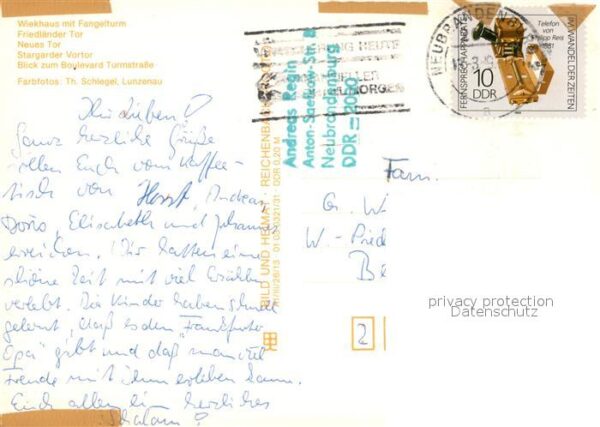 Wiekhaus mit Fangelturm
Friedländer Tor
Neues Tor
Stargarder Vortor
Blick zum Boulevard Turmstraße
Farbfotos: Th. Schlegel, Lunzenau
Ihr Lieben!
Ganz herzliche Grüße
sollen Euch vom Kaffee-
tisch von Horst, Andreas,
Doris, Elisabeth und Johannes
erreichen. Wir hatten eine
schöne Zeit mit viel Erzählen
verlebt. Die Kinder haben
gelernt, daß es den "Frankfurter
Opa" gibt und daß man viel
Freude mit ihm erleben kann.
Euch allen ein herzliches
Schalom!
BILD UND HEIMAT REICHENBACH
DDR 0,20 M
Andreas Regin
Anton-Saefkow-Str.
Neubrandenburg
DDR - 2000
HEUTE
MORGEN
NEUBRANDENBURG
FERNSPRECHAPPARATE IM WANDEL DER ZEITEN
Telefon von
Philipp Reis
1861
10
DDR
Fam.
G. Wi
W.-Pied
Be
2
privacy protection
Datenschutz